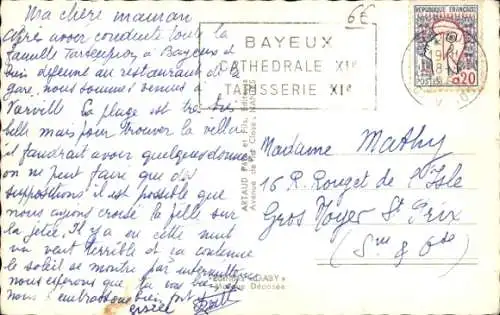 Ma chère maman
Après avoir conduite toute la
famille à Bayeux et
puis déjeuné au restaurant de la
gare, nous sommes venus à
Varville La plage est très
belle mais pour trouver la villa
il faudrait avoir quelques
on ne peut faire que des
suppositions il est possible que
nous ayons croisé la fille sur
la jetée. Il y a eu cette nuit
un vent terrible et ça continue
le soleil se montre par
nous espérons que tu vas bien
nous t'embrassons bien fort
6E
BAYEUX
CATHEDRALE XIe
TAPISSERIE XIe
REPUBLIQUE FRANÇAISE
POSTES 0,20
Madame Mathy
16 R. Rouget de l'Isle
Gros Noyer St Prix
(Sne & Oise)
ARTAUD Père et Fils, Editeurs
Editions "GABY"
Marque Déposée